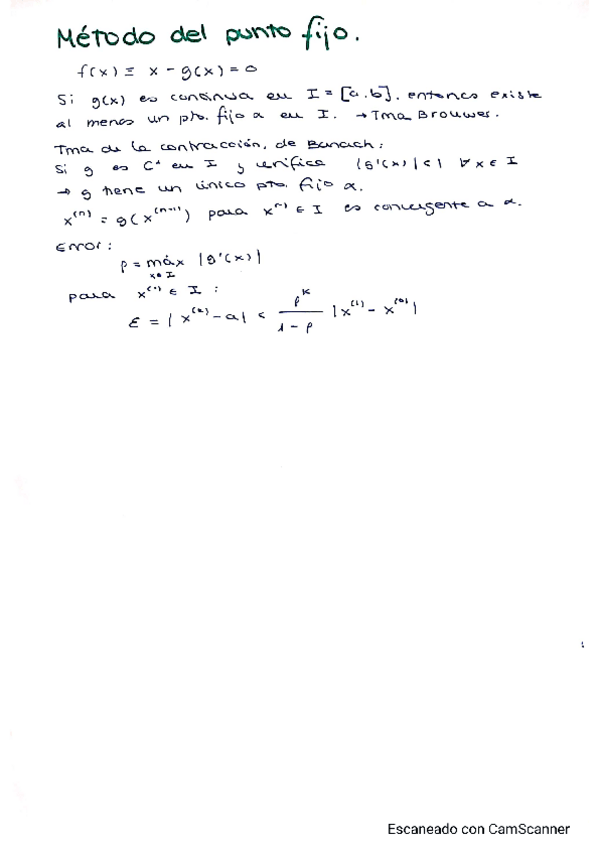 Método del punto fijo.
f(x) ≡ x - g(x) = 0
Si g(x) es continua en I = [a,b], entonces existe
al menos un pto. fijo α en I. → Tma Brouwer.
Tma de la contracción, de Banach:
Si g es C¹ en I y verifica |g'(x)| < 1 ∀ x ∈ I
→ g tiene un único pto. fijo α.
x⁽ⁿ⁾ = g(x⁽ⁿ⁻¹⁾) para x ∈ I es convergente a α.
Error:
ρ = máx |g'(x)|
x ∈ I
para x ∈ I :
ε = |x - α| < ρᴷ / (1 - ρ) |x⁽¹⁾ - x⁽⁰⁾|
Escaneado con CamScanner